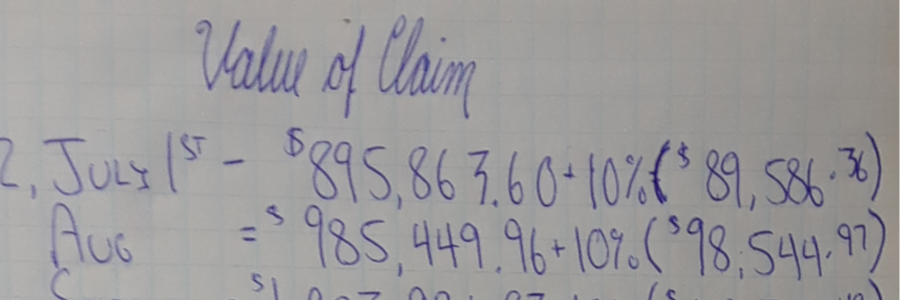 Value of Claim
2, July 1ST - $895,863.60+10%($89,586.36)
Aug = $985,449.96+10%($98,544.97)